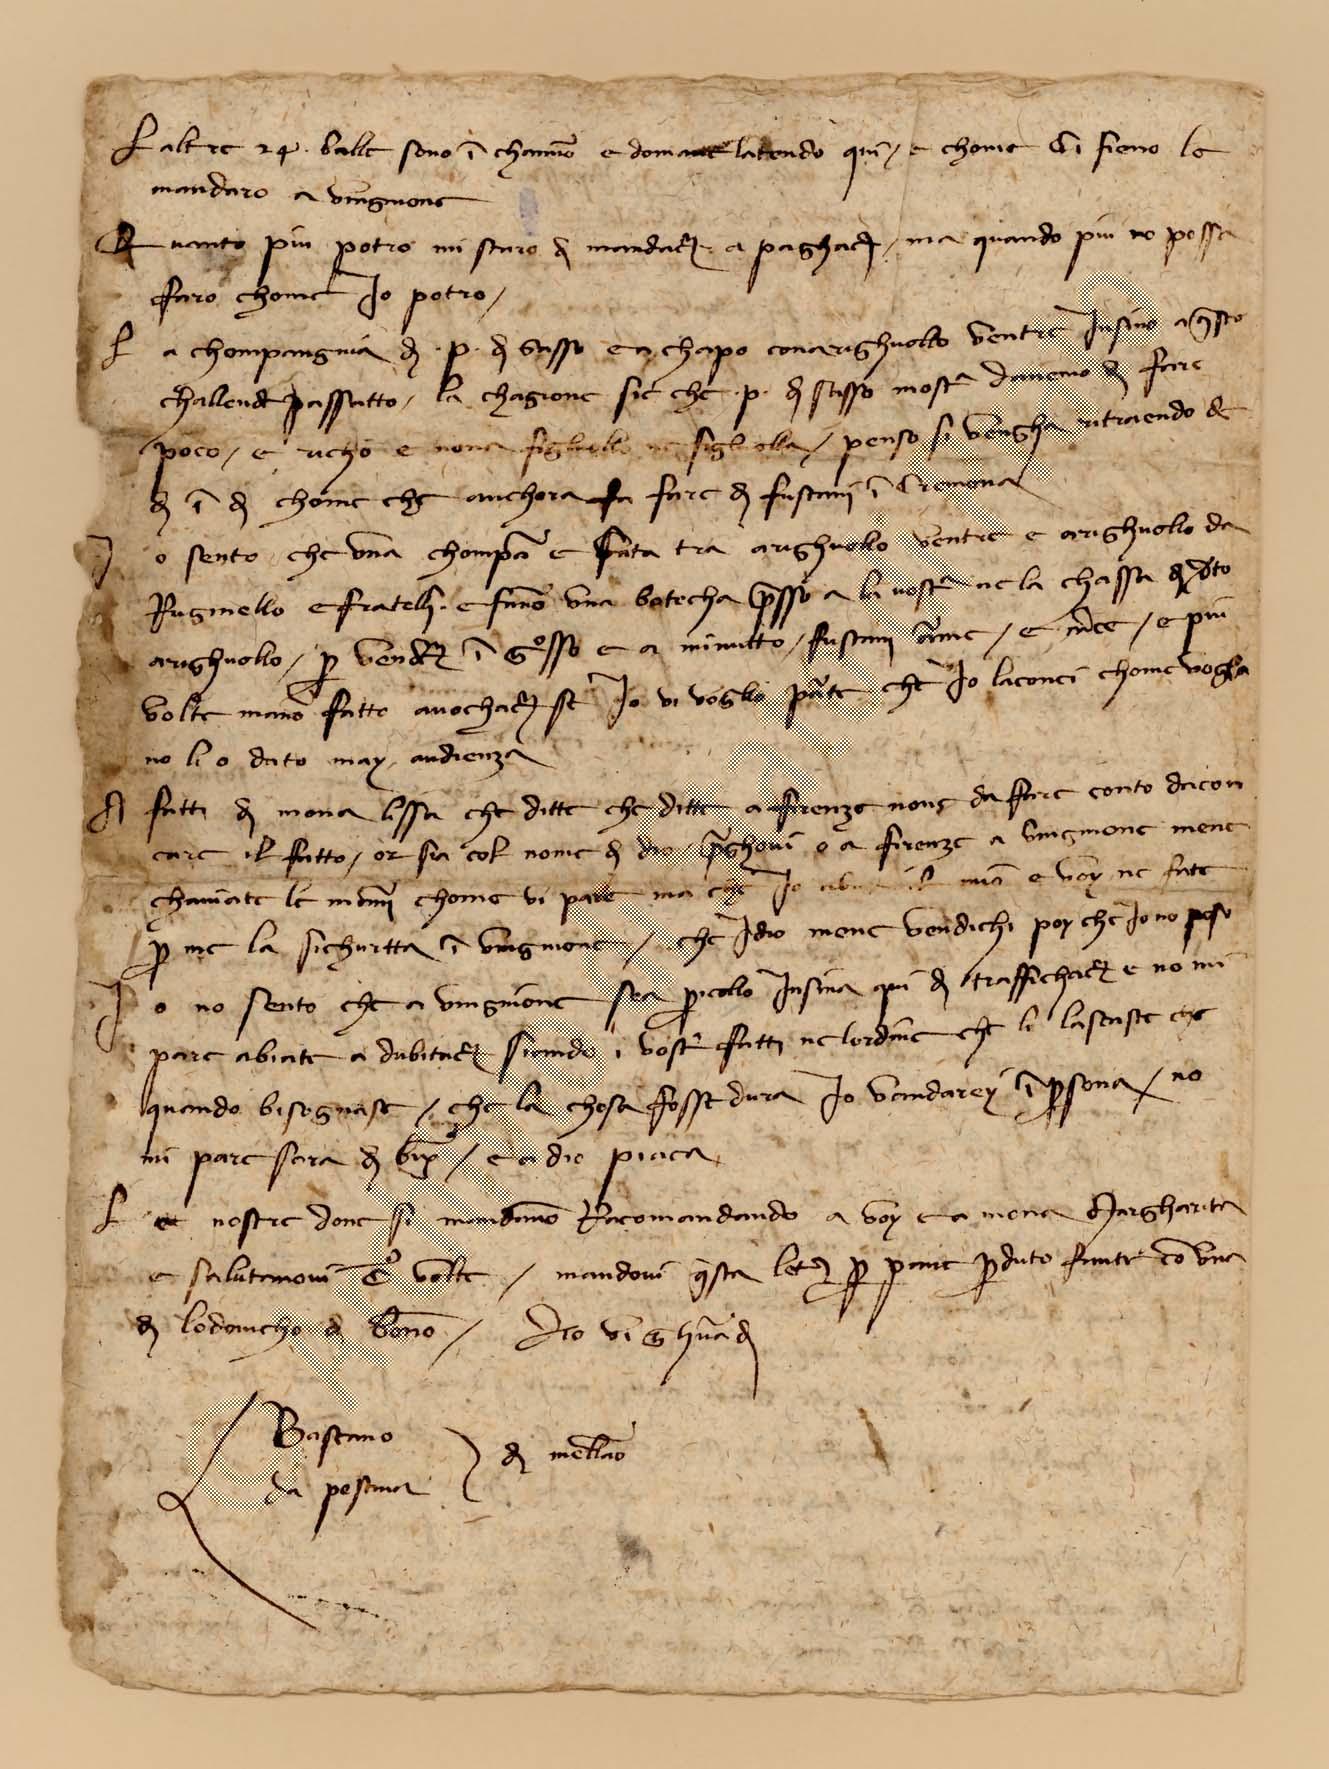 L altre 24 balle sono ī chamīo e domane latendo qui / e chome ci sieno le
mandaro a vingnone
Quanto piu potro mi staro d mandar a paghar / ma quando piu no possa
faro chome Io potro /
L a chompangnia d . p . d sasso e a chapo con arighuollo ventre Insino a qsto
challende passatto / la chagione sie che . p . d sasso mostra d fare
poco / e richo e nona figluollo ne figluolla / penso si vengha ritraendo de
d ī d chome che anchora fa fare d fustani ī Cremona
I o sento che vna chompa e fata tra arighuollo ventre e arighuollo da
Ruginello e fratelli e fano vna botecha presso a la vostra ne la chassa d dto
arighuollo / p vender ī grosso e a minutto / fustani arme / e merce / e piu
volte mano fatto avochar se Io vi voglio parte che Io laconci chome voglia
no li o dato may audienza
A fatti d mona lissa che ditte che ditte a firenze none da fare conto dacon
care il fatto / or sia col nome d dio / preghovi o a firenze o a vingnone mene
chaviate le mani chome vi pare ma che Io e voy ne fate
p me la sichurtta ī vingnone / che Idio mene vendichi poy che Io no poso
I o no sento che a vingnione sea picollo Insina qui d traffichar e no mi
pare abiate a dubitar siando i vostri fatti ne lordine che li lasciaste che
quando bisognase / che la chosa fosse dura Io vandarey ī psona / no
mi pare sara d / e a dio piaca
L e nostre done si mandano Racomandando a voy e a mona Margharita
e salutanovi C° volte / mandovi qsta letera p pome pduto fante co vna
d lodovicho d bono / Dio vi ghuardi
Bastano
da pescina
d mellano